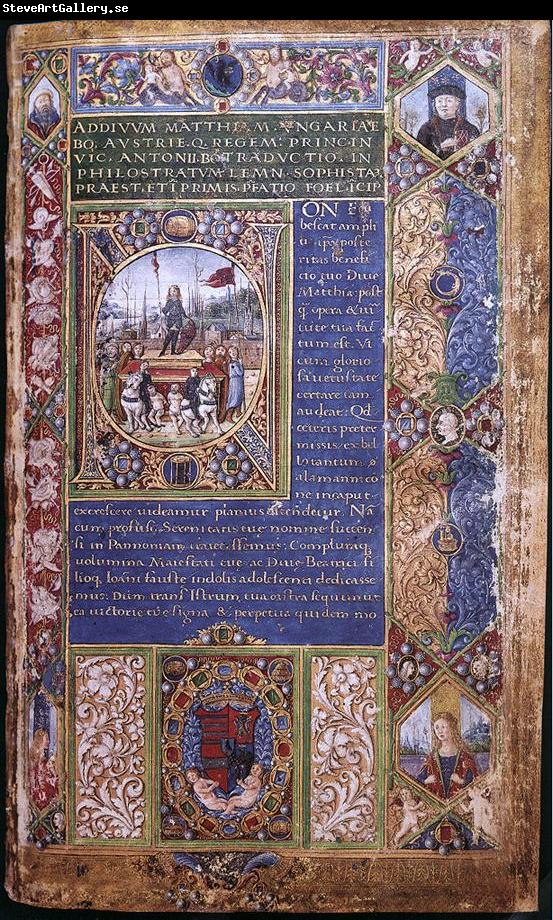 SteveArtGallery.se
AD DIVVM MATTHIAM VNGARIAE
BO. AVSTRIE.Q. REGEM. PRINCIN
VIC. ANTONII. BO TRADVCTIO. IN
PHILOSTRATVM LEMN. SOPHISTA
PRAEST. ET I PRIMIS. PFATIO FOELICIP
ON
bescat ampli
poste
ritas benefi
cio tuo Diue
Matthia: post
q̄ opera & uir
tute tua fac
tum est. Vt
cum glorio
sa uetustate
certare iam
audeat: Qd
ceteris preter
missis, ex bel
lo tantum
alamannico
ne in caput
excrescere uideamur planius ostendetur. Na
cum profusc. Serenitatis tue nomine succen
si in Pannoniam Complura
uolumina Maiestati tue ac Diue Beatrici fi
lioq. Ioani fauste indolis adolescenti dedicasse
mus: Dum trans Istrum tua castra sequimur
ea uictorie tue signa & perpetua quidem mo